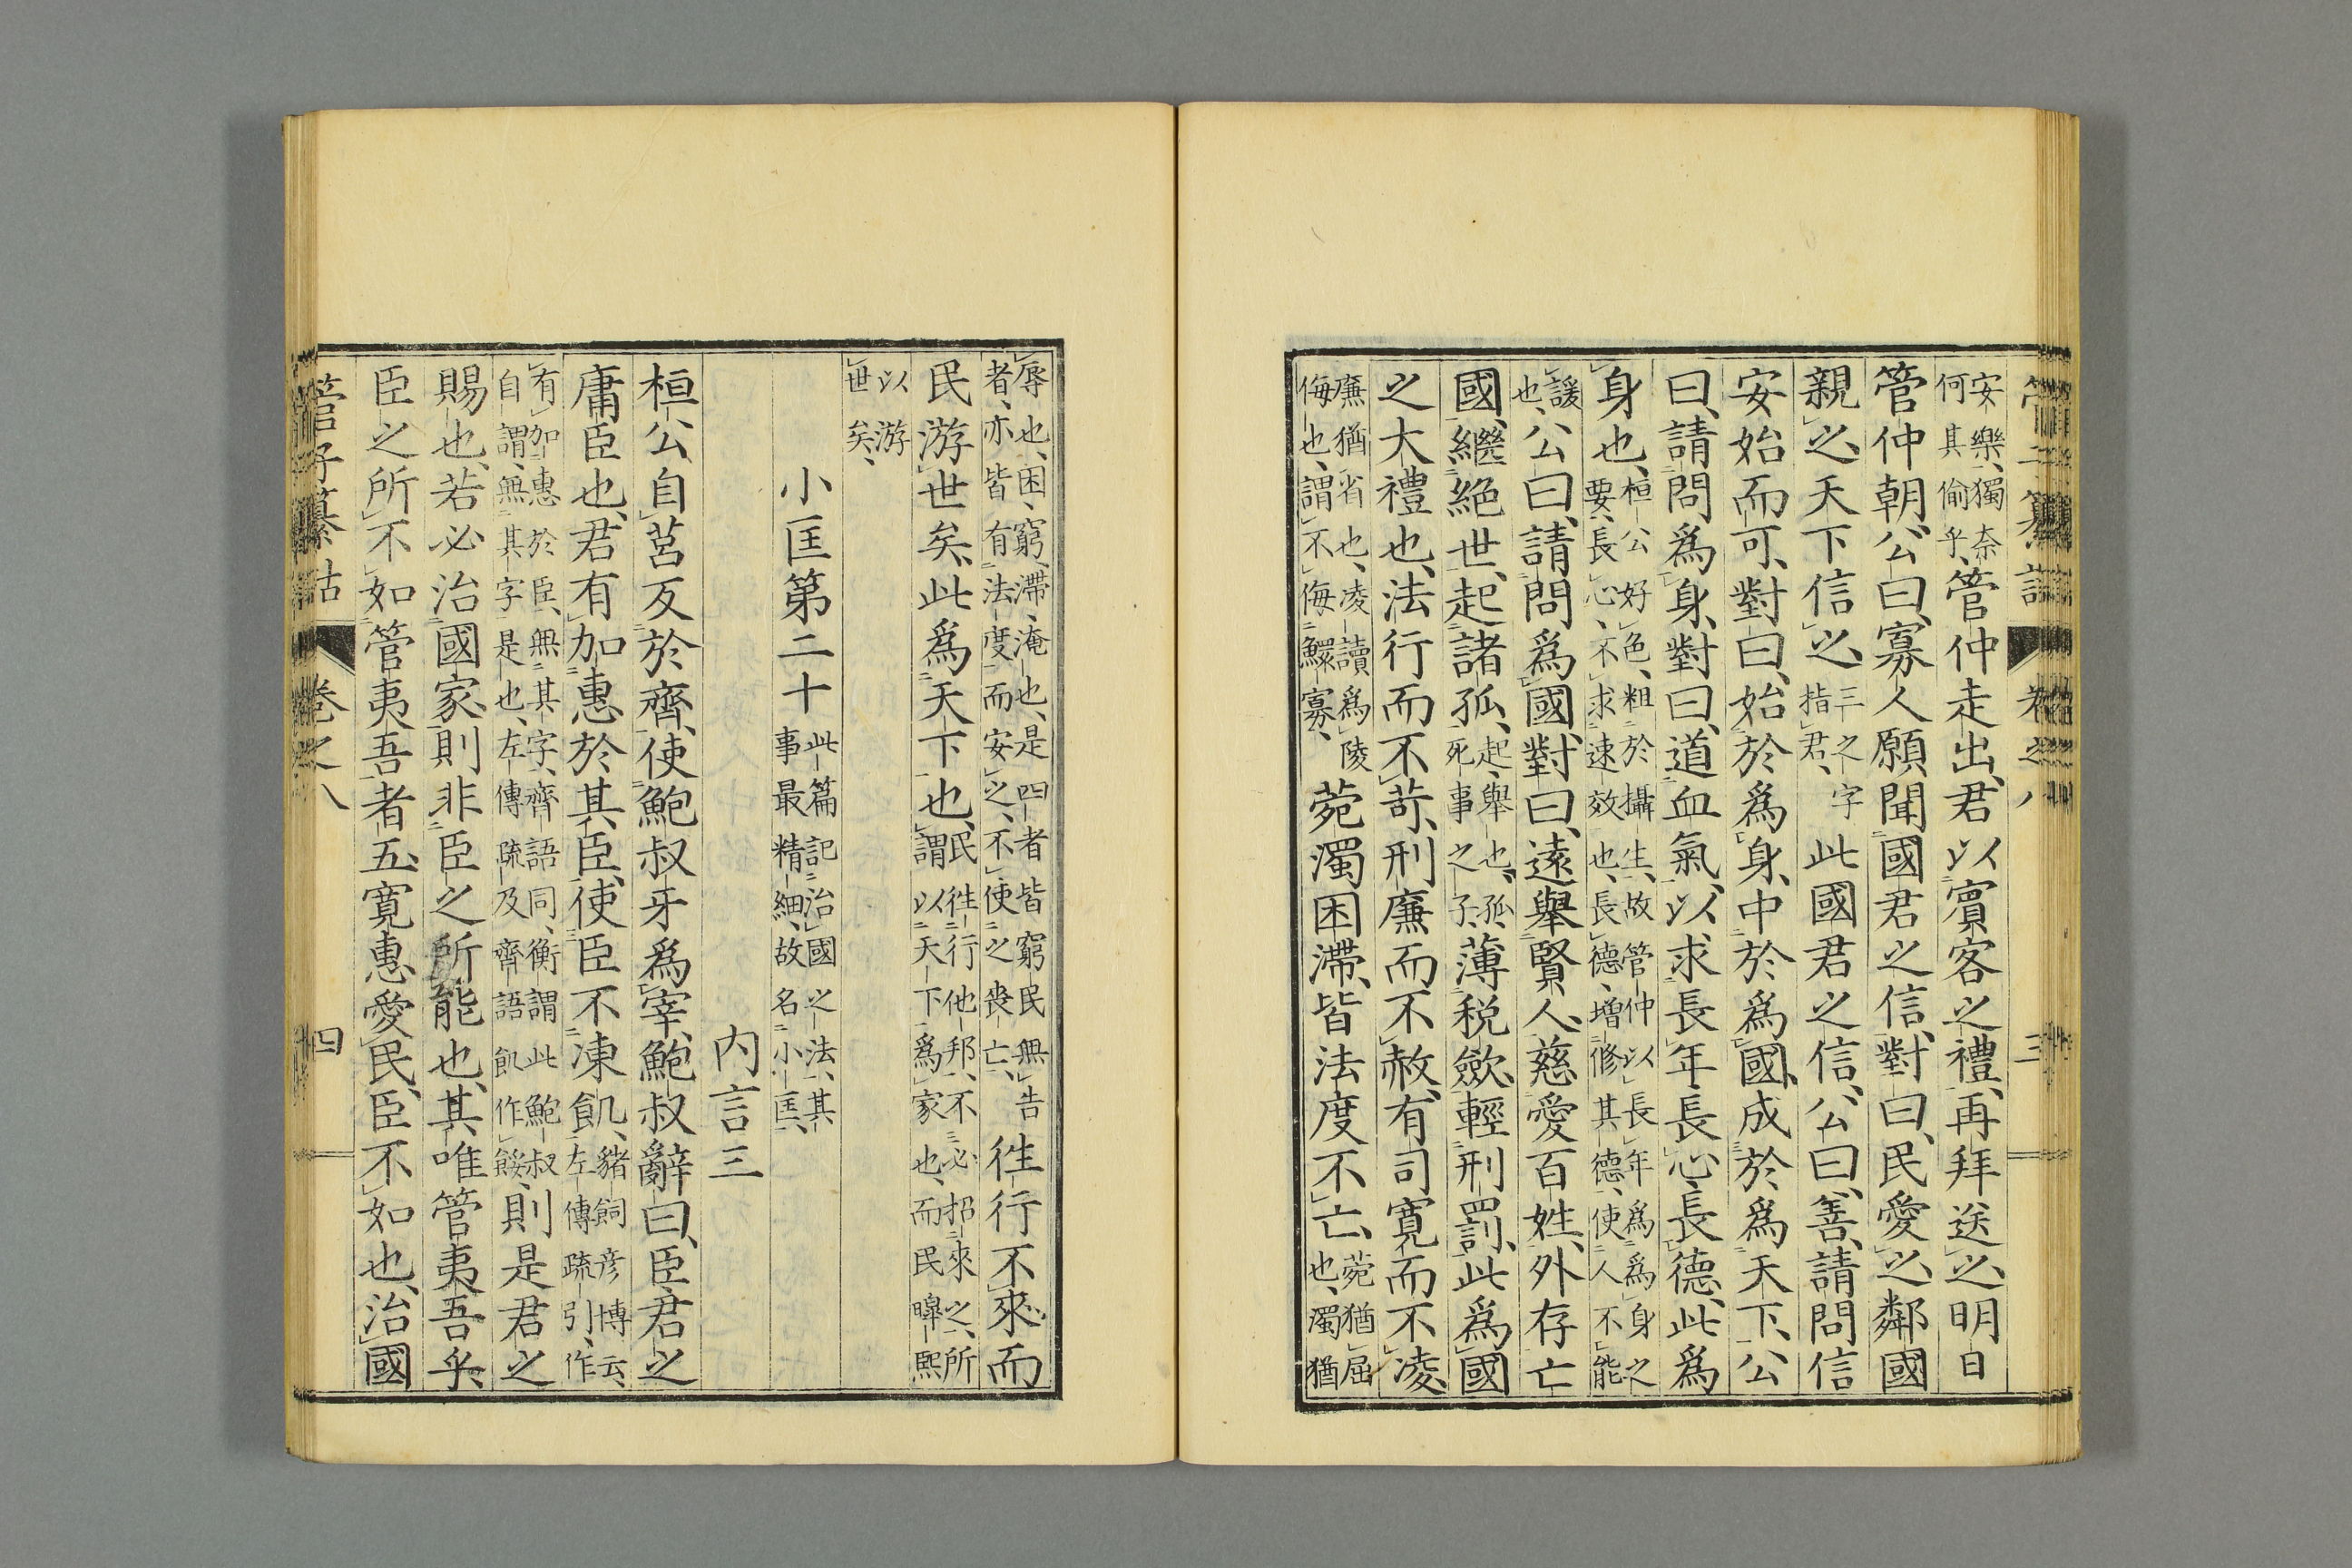 管子纂詁 卷之八 三
安樂、獨奈
何其偷乎、管仲走出、君以賓客之禮、再拜送之、明日
管仲朝、公曰、寡人願聞國君之信、對曰、民愛之、鄰國
親之、天下信之、三之字
指君、此國君之信、公曰、善、請問信
安始而可、對曰、始於爲身、中於爲國、成於爲天下、公
曰、請問爲身、對曰、道血氣、以求長年、長心、長德、此爲
身也、桓公好色、粗於攝生、故管仲以長年爲爲身之
要、長心、不求速效也、長德、增修其德、使人不能
諼
也、公曰、請問爲國、對曰、遠舉賢人、慈愛百姓、外存亡
國、繼絕世、起諸孤、起、舉也、孤、
死事之子、薄稅歛、輕刑罰、此爲國
之大禮也、法行而不苛、刑廉而不赦、有司寬而不凌、
廉猶省也、凌讀爲陵
侮也、謂不侮鰥寡、菀濁困滯、皆法度不亡、菀猶屈
也、濁猶
辱也、困、窮、滯、淹也、是四者皆窮民無告
者、亦皆有法度而安之、不使之喪亡、徃行不來而
民游世矣、此爲天下也、民徃行他邦、不必招來之、所
謂以天下爲家也、而民皞熙
以游
世矣、
小匡第二十 此篇記治國之法、其
事最精細、故名小匡、
內言三
桓公自莒反於齊、使鮑叔牙爲宰、鮑叔辭曰、臣、君之
庸臣也、君有加惠於其臣、使臣不凍飢、豬飼彥博云、
左傳疏引、作
有加惠於臣、無其字、齊語同、衡謂此鮑叔
自謂、無其字是也、左傳疏及齊語飢作餒、則是君之
賜也、若必治國家、則非臣之所能也、其唯管夷吾乎、
臣之所不如管夷吾者五、寬惠愛民、臣不如也、治國
管子纂詁 卷之八 四